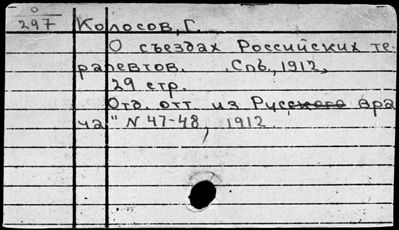 0
297 Колосов, Г.
О съездах Российских те-
рапевтов. Спб., 1912,
29 стр.
Отд. отт. из Русского вра
ча" N 47-48, 1912